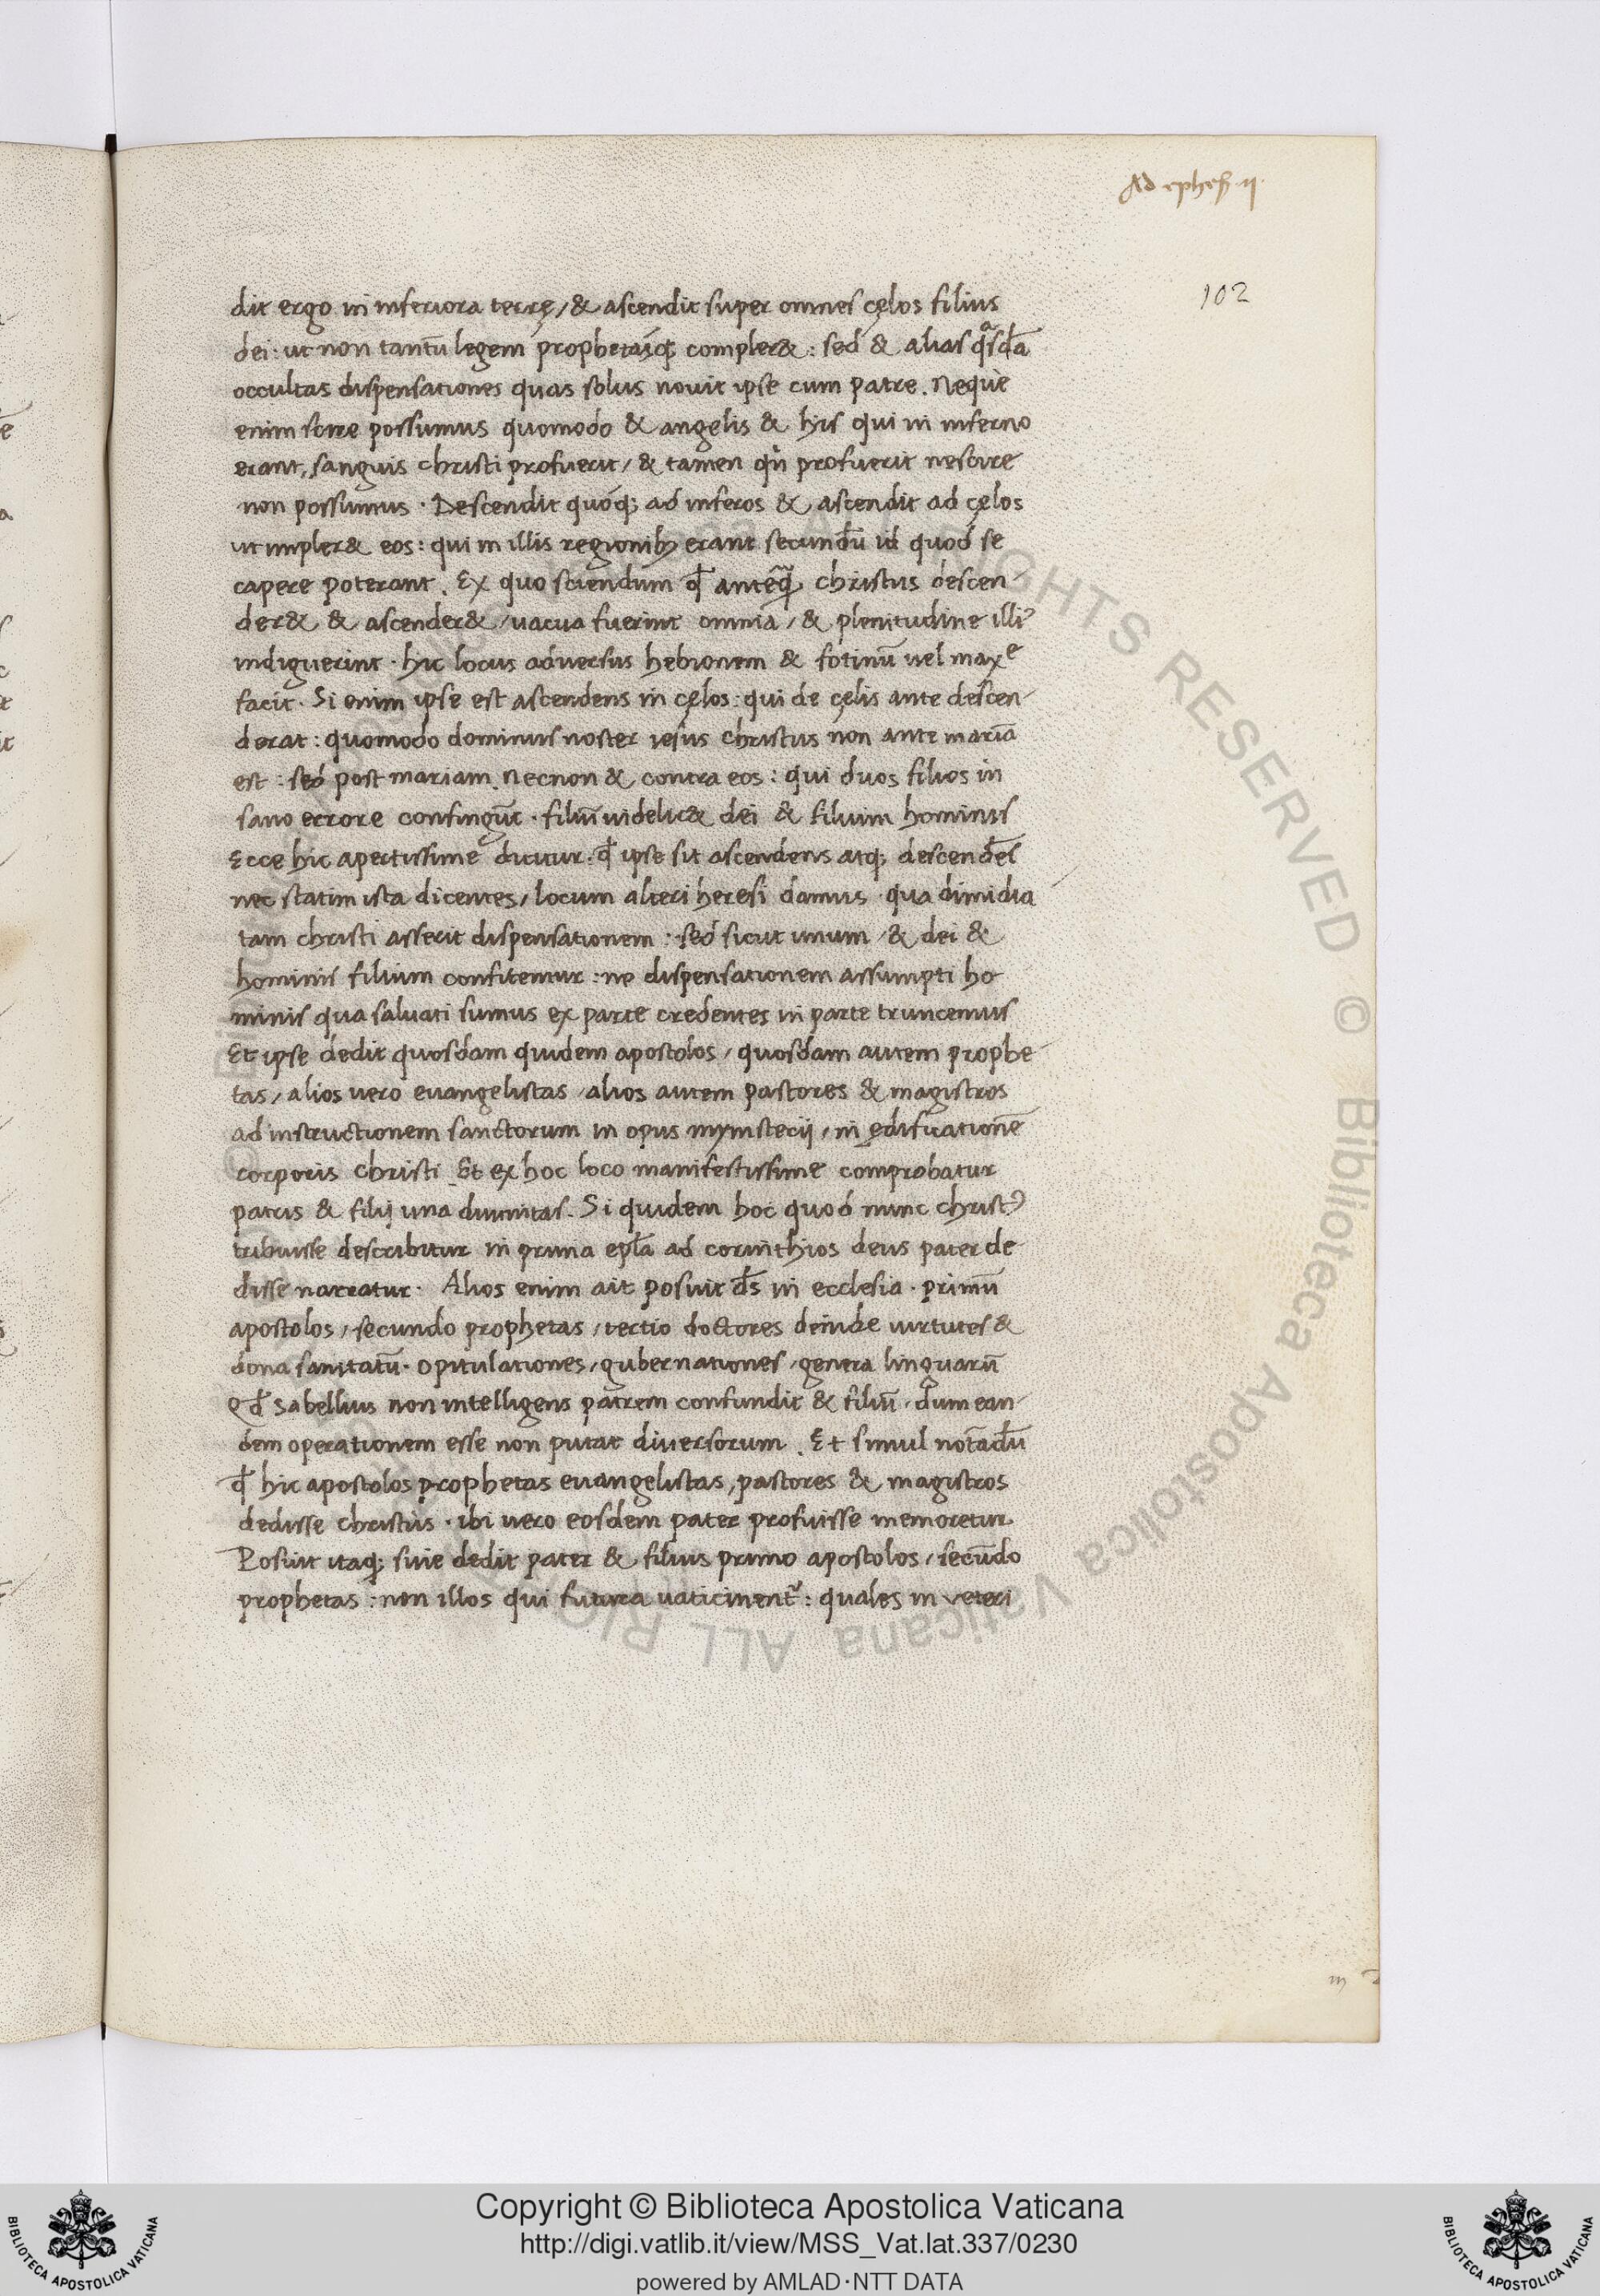 Ad ephes̄ ·ıı·
102
dit ergo in inferiora terrę, & ascendit super omnes cęlos filius
dei: ut non tantū legem prophetasq; compler&: sed & alias qᵃsdā
occultas dispensationes quas solus novit ipse cum patre. Neque
enim scire possumus quomodo & angelis & his qui in inferno
erant, sanguis christi profuerit, & tamen qn̄ profuerit nescire
non possumus. Descendit quoq; ad inferos & ascendit ad cęlos
ut impler& eos: qui in illis regionibꝫ erant secundū id quod se
capere poterant. Ex quo sciendum qđ anteq̄ christus descen-
der& & ascender&, vacua fuerint omnia, & plenitudine illiꝰ
indiguerint. hic locus adversus hebionem & fotinū vel maxᵉ
facit. Si enim ipse est ascendens in cęlos: qui de cęlis ante descen-
derat: quomodo dominus noster iesus christus non ante mariā
est: sed post mariam. Necnon & contra eos: qui duos filios in
sano errore confingūt. filiū videlic& dei & filium hominis
Ecce hic apertissime dicitur: qđ ipse sit ascendens atq; descendēs
nec statim ista dicentes, locum alteri heresi damus qua dimidia
tam christi asserit dispensationem: sed sicut unum, & dei &
hominis filium confitemur: ne dispensationem assumpti ho
minis qua salvati sumus ex parte credentes in parte truncemus
Et ipse dedit quosdam quidem apostolos, quosdam autem prophe-
tas, alios vero evangelistas, alios autem pastores & magistros
ad instructionem sanctorum in opus mynisterij, in ędificationē
corporis christi. Et ex hoc loco manifestissime comprobatur
patris & filij una divinitas. Si quidem hoc quod nunc christꝰ
tribuisse describitur in prima epl̄a ad corinthios deus pater de-
disse narratur. Alios enim ait posuit ds̄ in ecclesia. primū
apostolos, secundo prophetas, tertio doctores deinde virtutes &
dona sanitatū. opitulationes, gubernationes, genera linguarū
Qđ Sabellius non intelligens patrem confundit & filiū, dum ean-
dem operationem esse non putat diversorum. Et simul notādū
qđ hic apostolos prophetas evangelistas, pastores & magistros
dedisse christus. ibi vero eosdem pater profuisse memoretur.
Posuit itaq; sive dedit pater & filius primo apostolos, secūdo
prophetas: non illos qui futura vaticinentʳ: quales in veteri
Copyright © Biblioteca Apostolica Vaticana
http://digi.vatlib.it/view/MSS_Vat.lat.337/0230
powered by AMLAD·NTT DATA